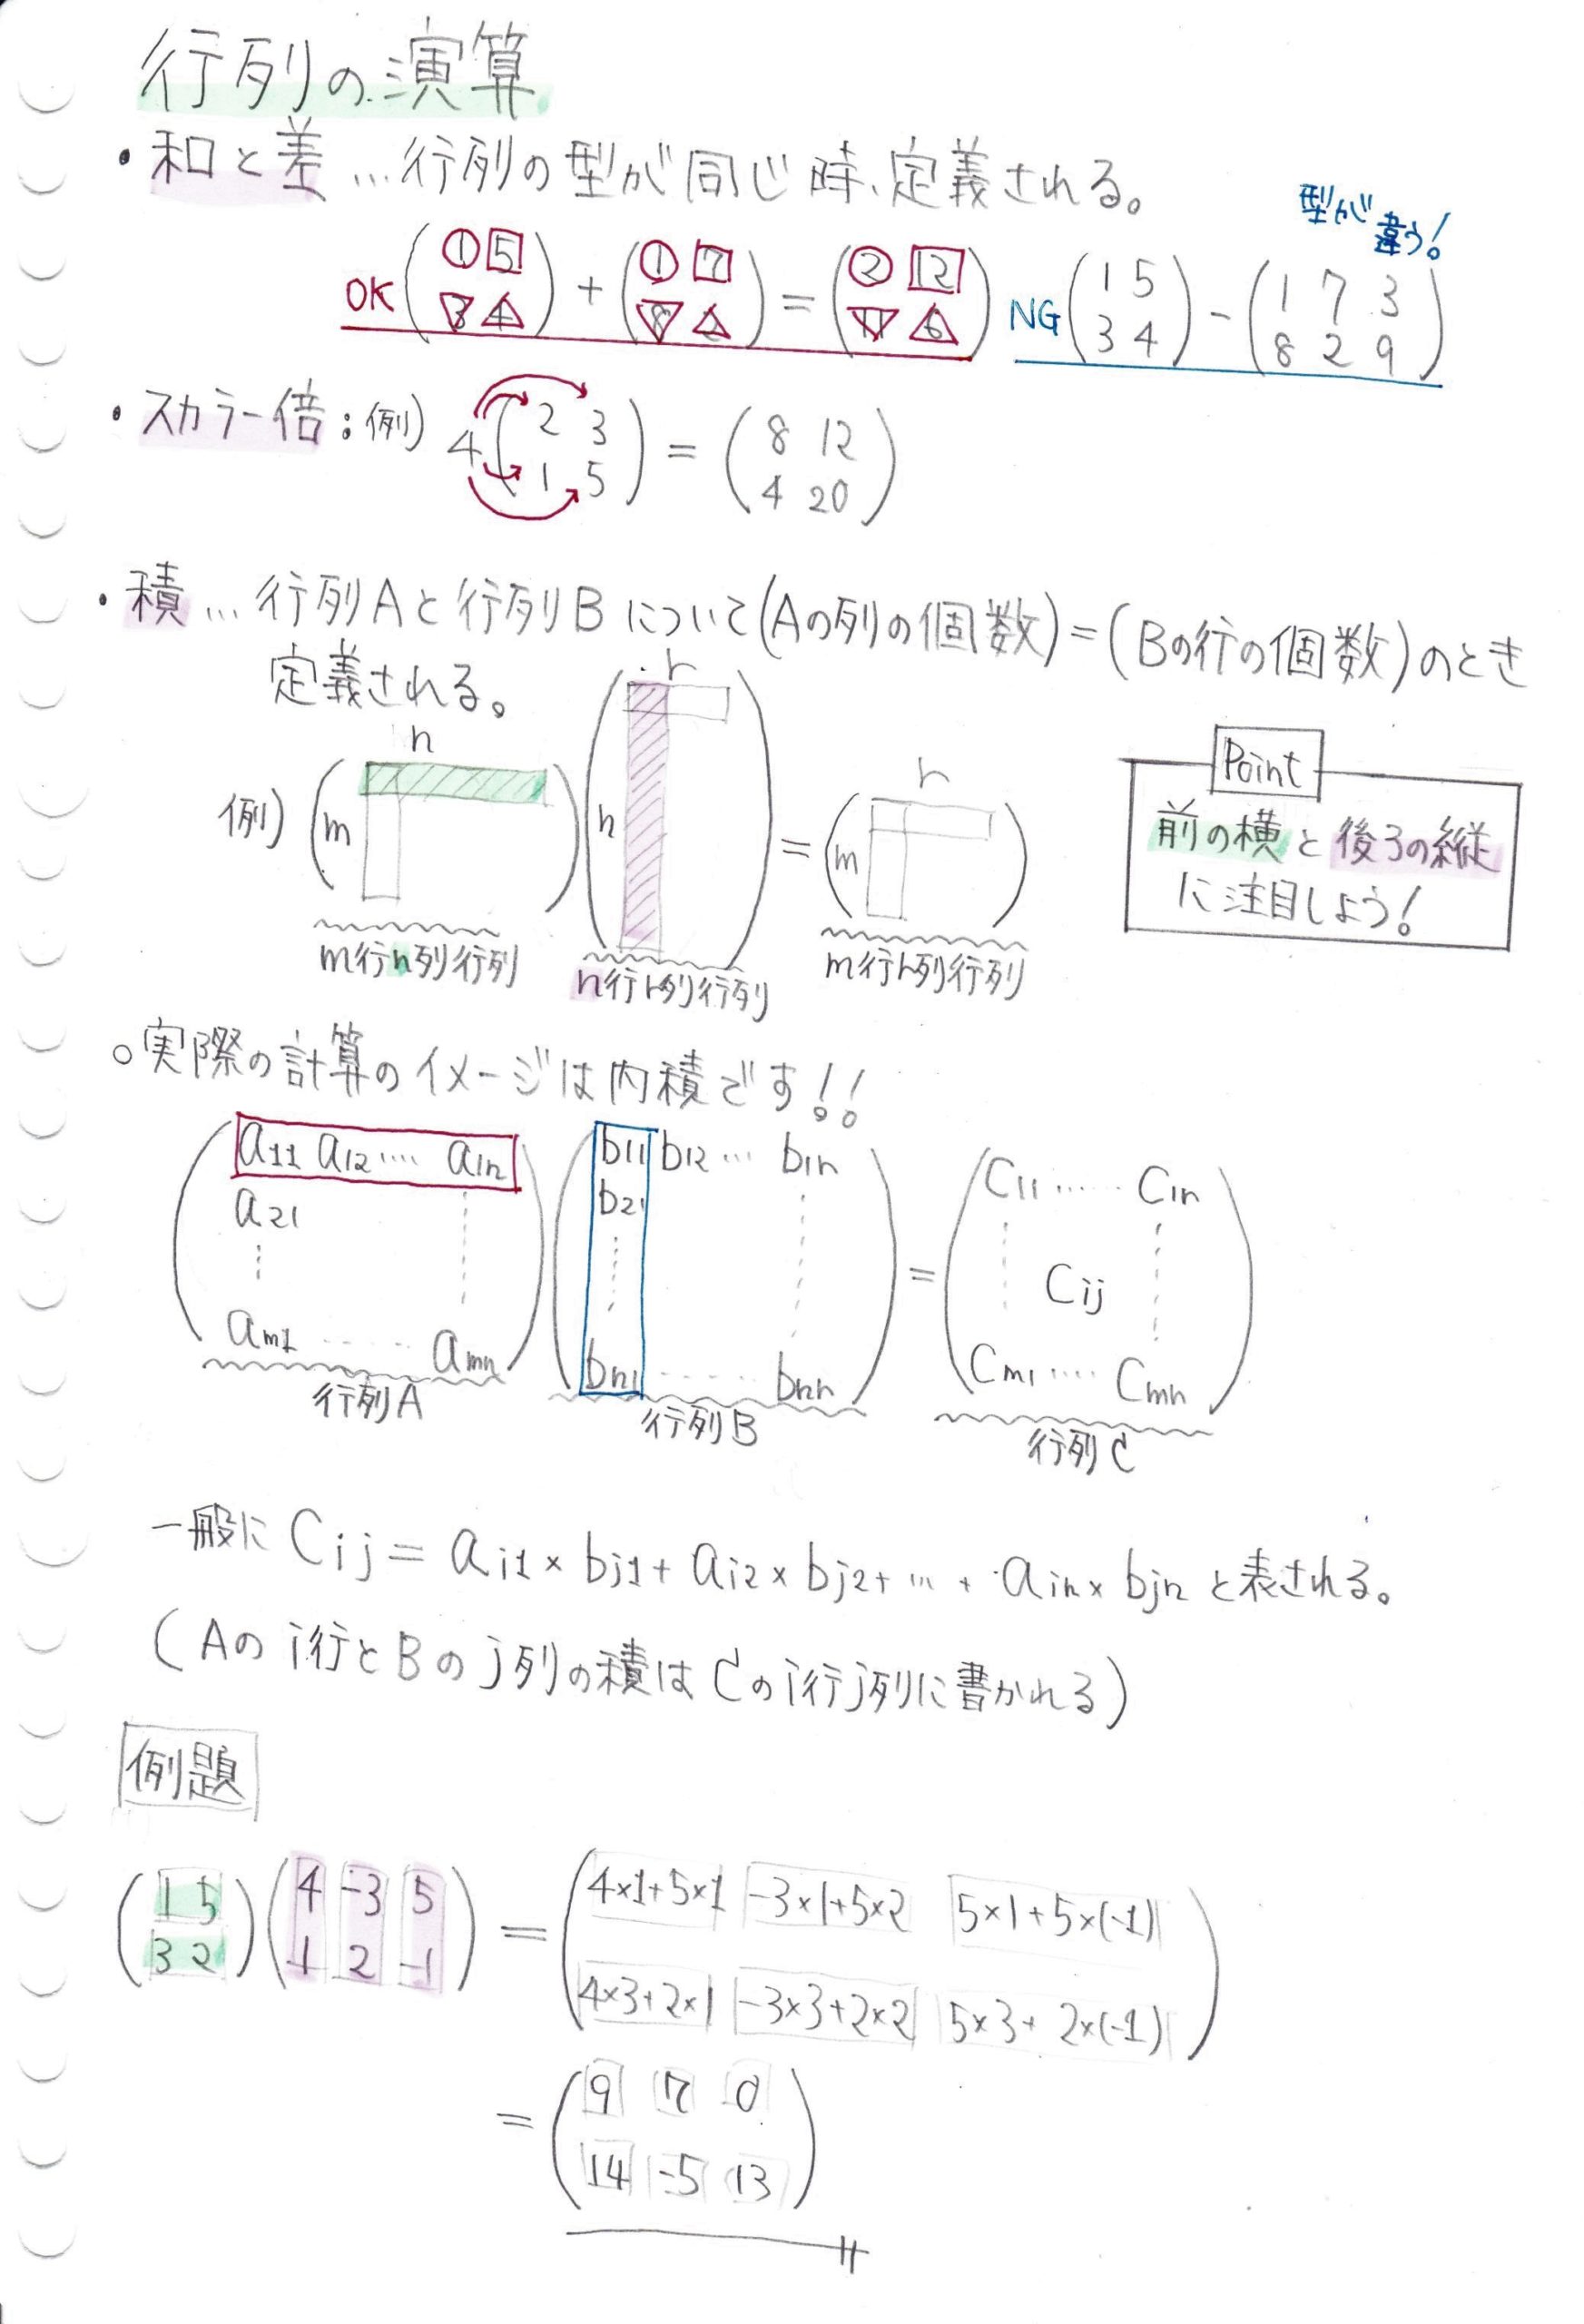 行列の演算
・和と差…行列の型が同じ時、定義される。
型が違う!
OK (① 5 / 3 4) + (① 7 / 8 2) = (② 12 / 11 6) NG (1 5 / 3 4) - (1 7 3 / 8 2 9)
・スカラー倍:例) 4(2 3 / 1 5) = (8 12 / 4 20)
・積…行列Aと行列Bについて(Aの列の個数)=(Bの行の個数)のとき
定義される。
例) (m n)(n r) = (m r)
m行n列行列 n行r列行列 m行r列行列
Point
前の横と後ろの縦
に注目しよう!
○実際の計算のイメージは内積です!!
a11 a12 …. a1n b11 b12 … b1n C11 …… C1n
a21 b21
= Cij
am1 …… amn bn1 …… bnn Cm1 …… Cmn
行列A 行列B 行列C
一般に Cij = ai1 × bj1 + ai2 × bj2 + … + ain × bjn と表される。
(Aのi行とBのj列の積はCのi行j列に書かれる)
例題
(1 5 / 3 2)(4 -3 5 / 1 2 -1) = (4×1+5×1 -3×1+5×2 5×1+5×(-1) / 4×3+2×1 -3×3+2×2 5×3+2×(-1))
= (9 7 0 / 14 -5 13)